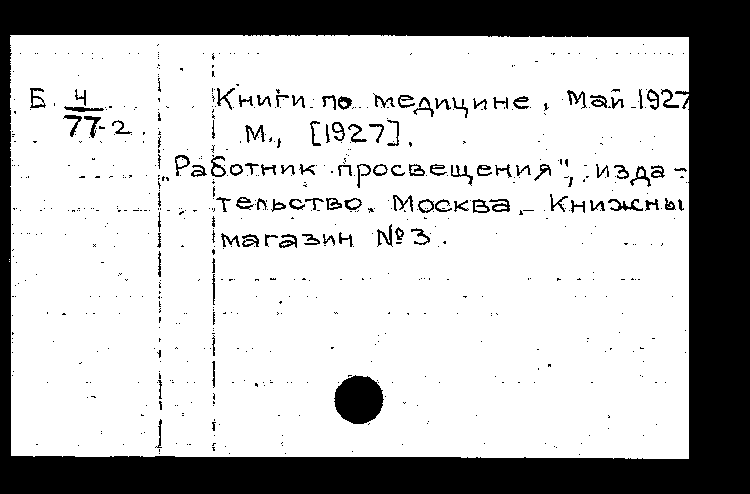 Б Ч/77-2
Книги по медицине, Май 1927
М., [1927].
„Работник просвещения", изда-
тельство. Москва. – Книжны
магазин №3.